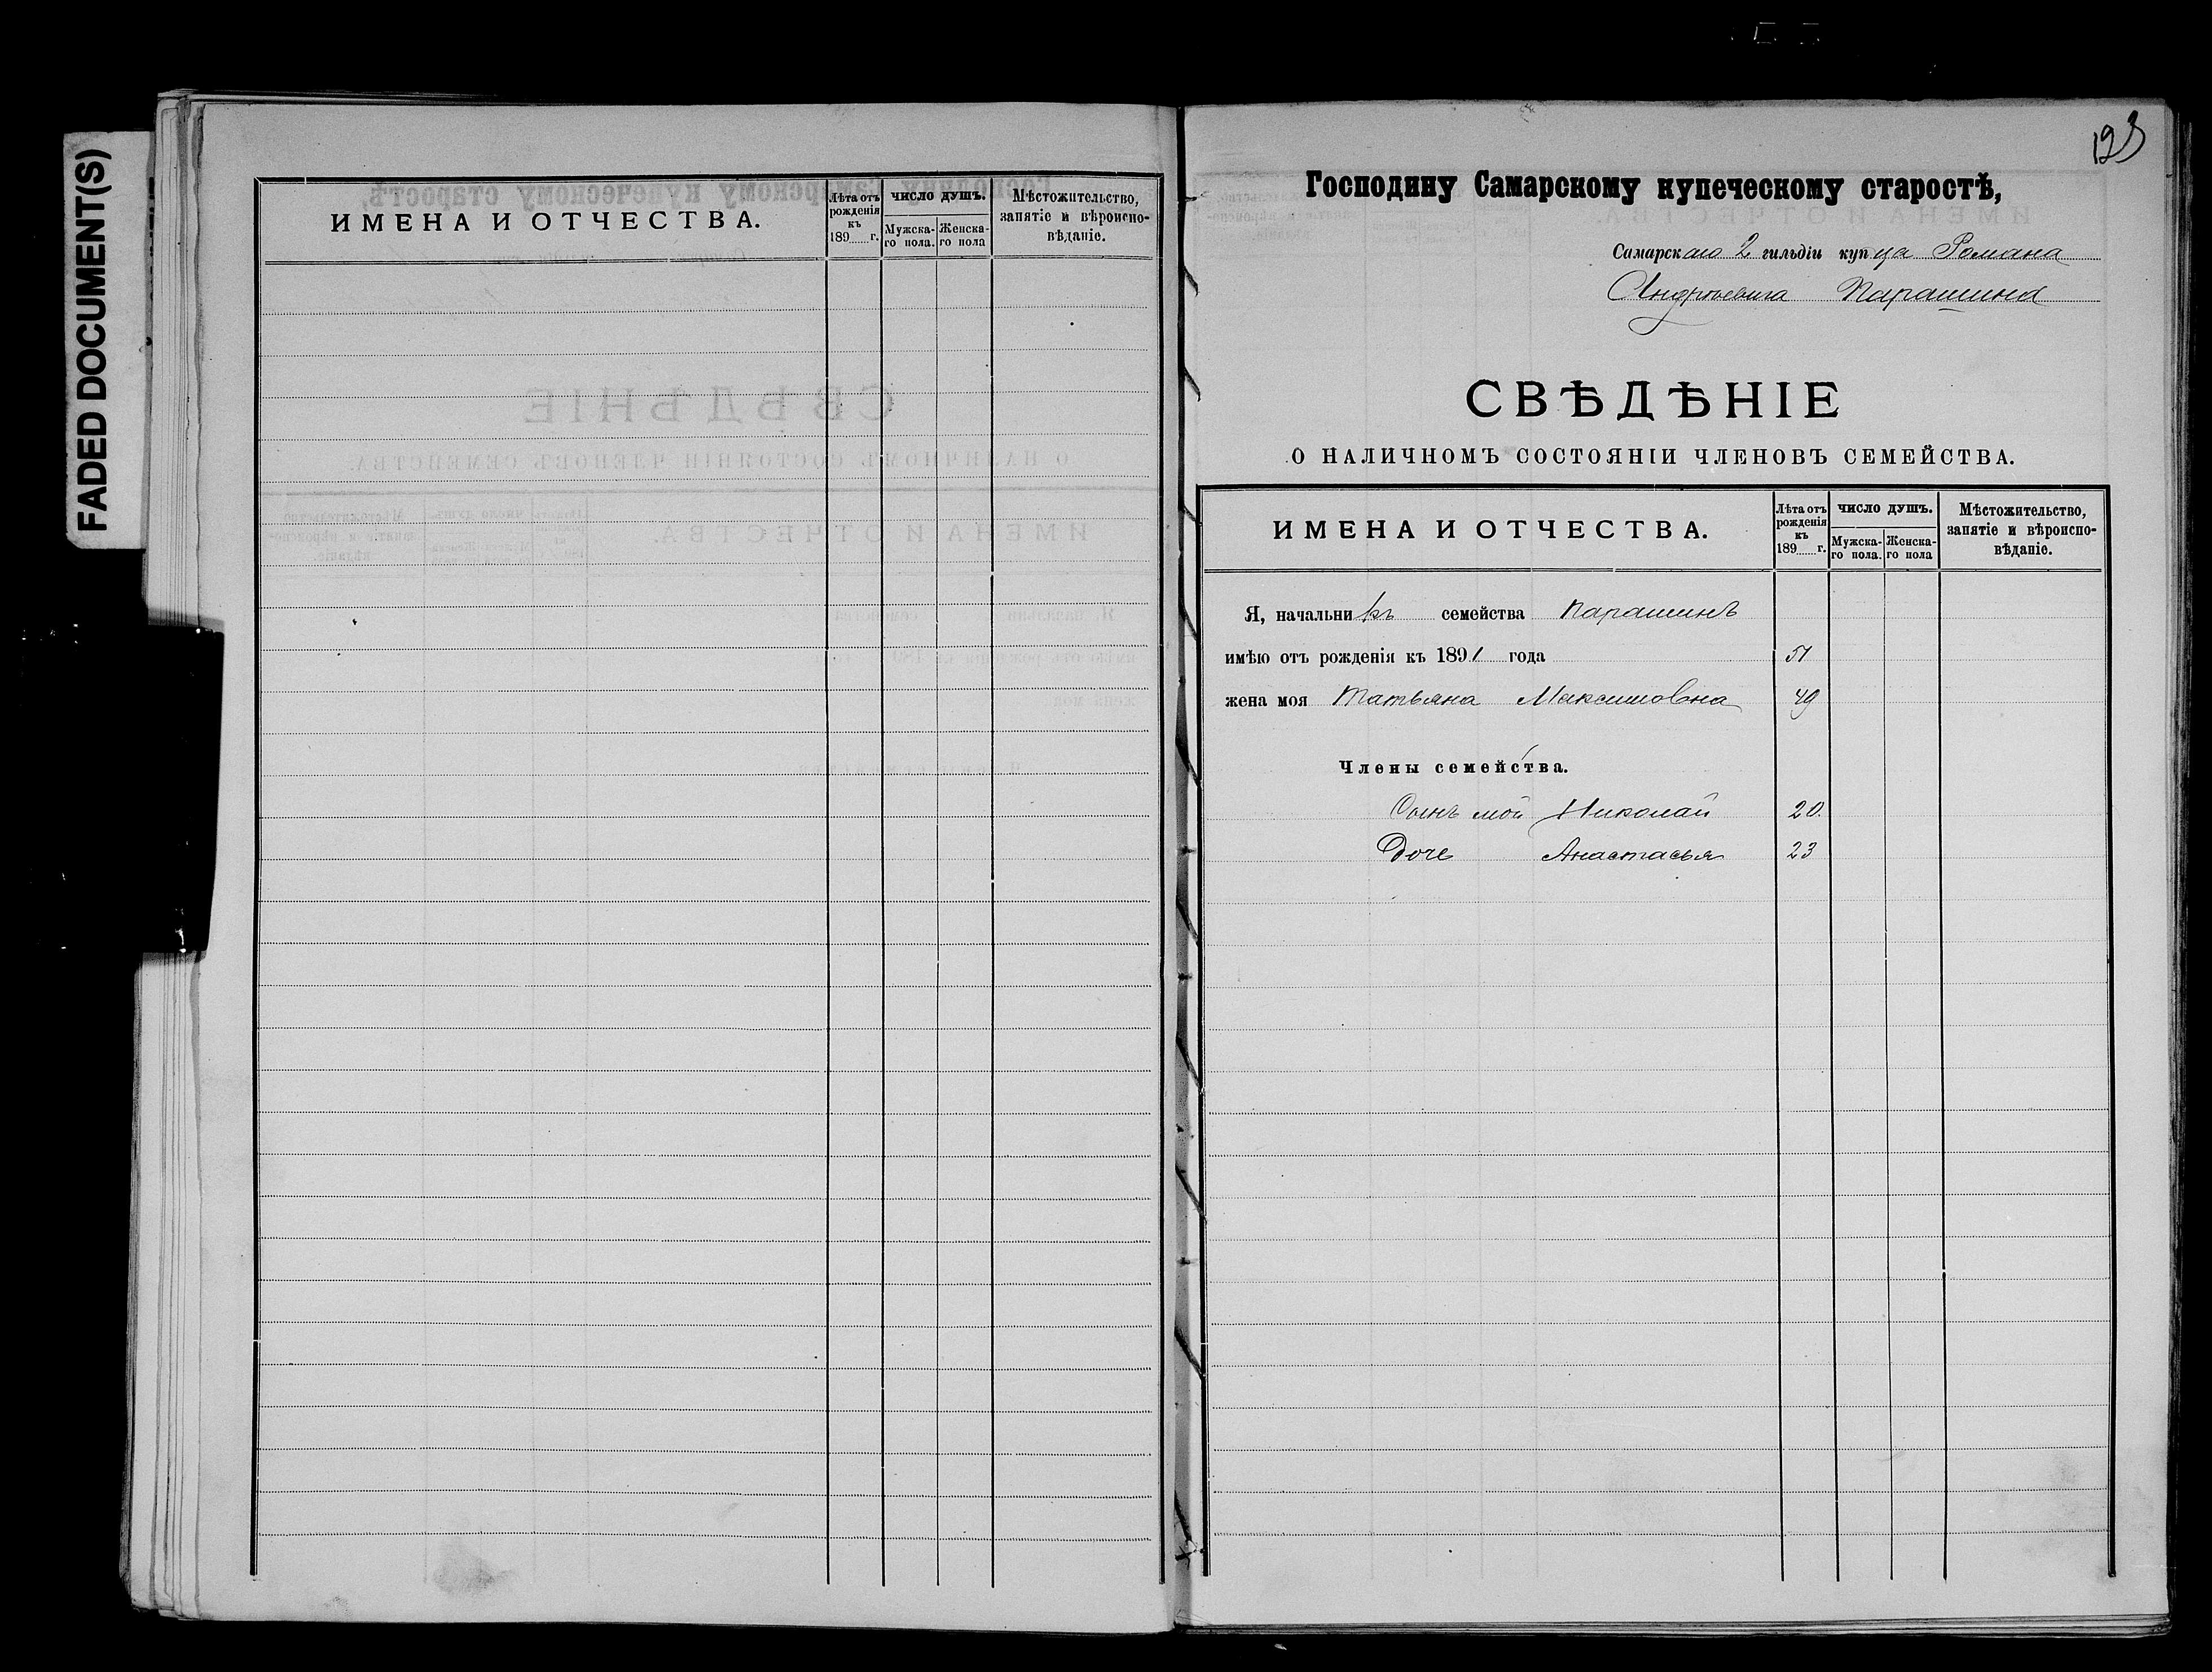 FADED DOCUMENT(S)
ИМЕНА И ОТЧЕСТВА.
Лѣта отъ рожденія къ 189 г.
ЧИСЛО ДУШЪ.
Мужска-го пола.
Женска-го пола
Мѣстожительство, занятіе и вѣроиспо-вѣданіе.
193
Господину Самарскому купеческому старостѣ,
Самарскаго 2 гильдіи купца Романа
Андреевича Парашина
СВѢДѢНІЕ
О НАЛИЧНОМЪ СОСТОЯНІИ ЧЛЕНОВЪ СЕМЕЙСТВА.
ИМЕНА И ОТЧЕСТВА.
Лѣта отъ рожденія къ 189 г.
ЧИСЛО ДУШЪ.
Мужска-го пола.
Женска-го пола
Мѣстожительство, занятіе и вѣроиспо-вѣданіе.
Я, начальникъ семейства Парашинъ
имѣю отъ рожденія къ 1891 года 51
жена моя Татьяна Максимовна 49
Члены семейства.
Сынъ мой Николай 20.
Дочь Анастасья 23